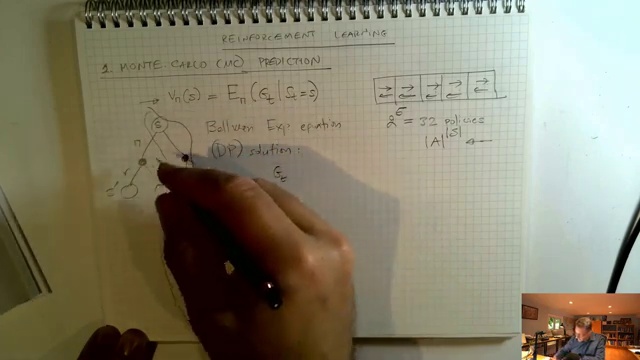 REINFORCEMENT LEARNING
1. MONTE-CARLO (MC) PREDICTION
→ Vπ(s) = Eπ(Gt | St = s)
Bellman Exp equation
(DP) solution:
Gt
s
π
r
s'
→ → → → →
← ← ← ← ←
2^5 = 32 policies
|A|^|S| ←